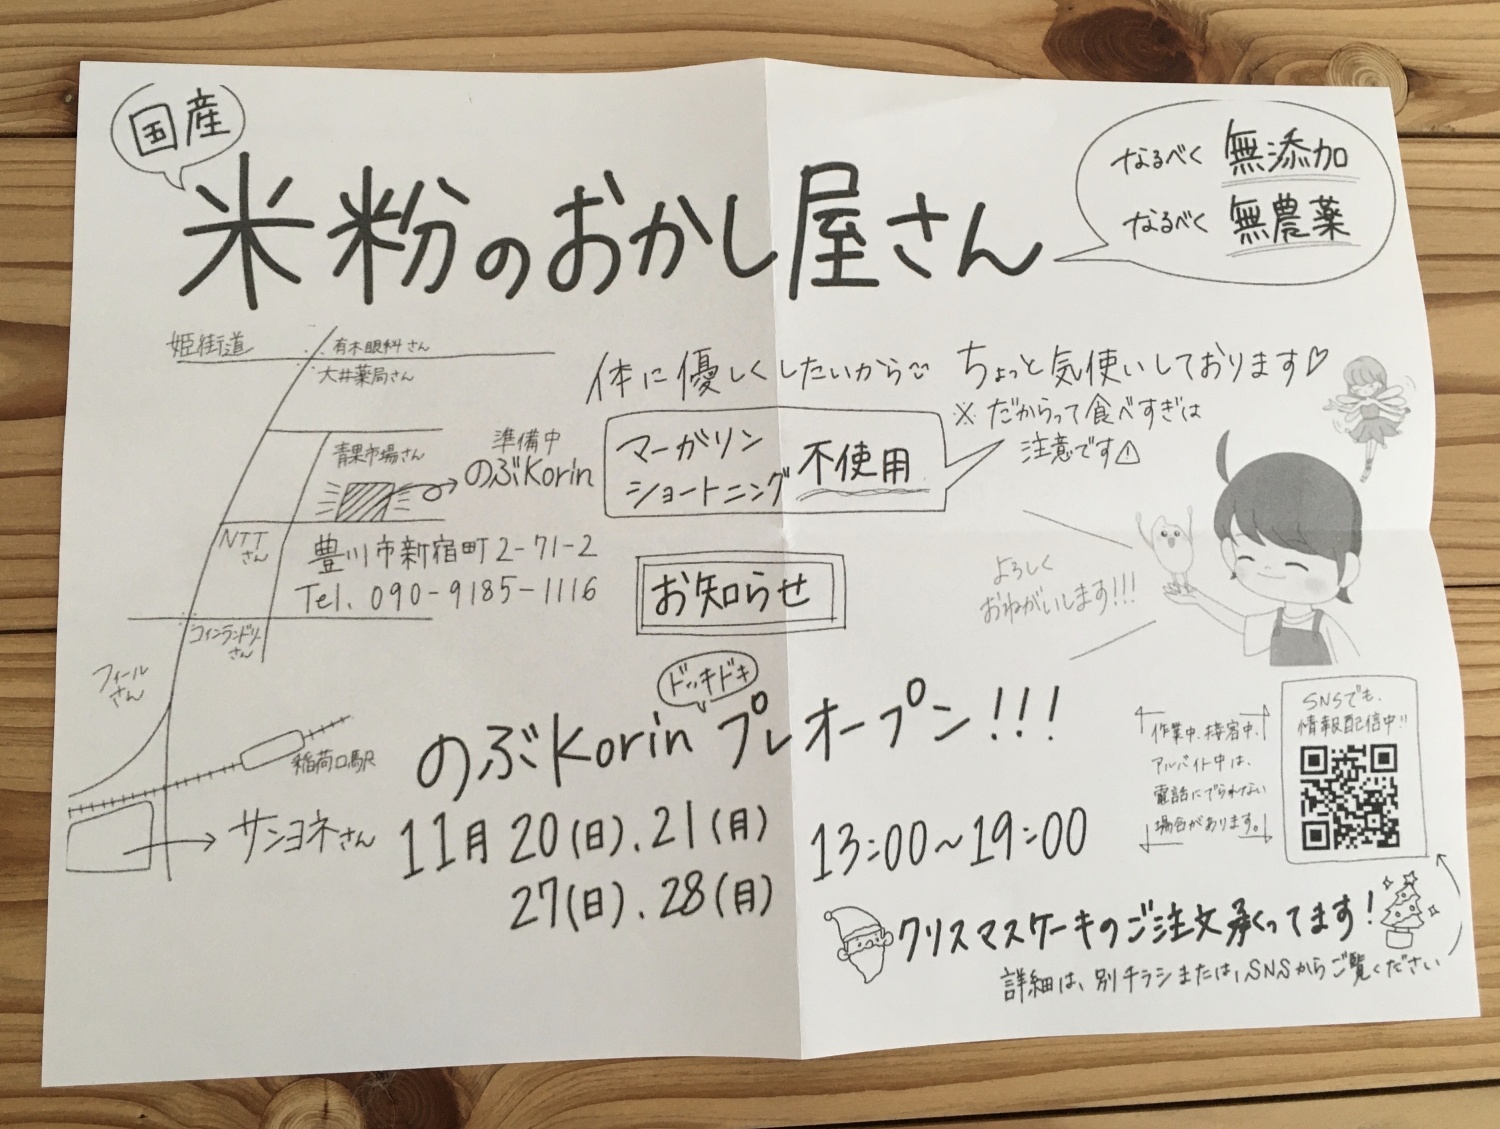 国産
米粉のおかし屋さん
なるべく 無添加
なるべく 無農薬
姫街道
有木眼科さん
大井薬局さん
体に優しくしたいから
ちょっと気使いしております♡
※だからって食べすぎは
注意です⚠
マーガリン
ショートニング
不使用
青果市場さん
準備中
のぶKorin
NTT
さん
豊川市新宿町2-71-2
Tel. 090-9185-1116
コインランドリー
さん
お知らせ
よろしく
おねがいします!!!
フィール
さん
ドッキドキ
のぶKorin プレオープン!!!
稲荷口駅
サンヨネさん
11月20(日).21(月)
27(日).28(月)
13:00~19:00
作業中、接客中、
アルバイト中は、
電話にでられない
場合があります。
SNSでも、
情報配信中!!
クリスマスケーキのご注文承ってます!
詳細は、別チラシまたは、SNSからご覧ください